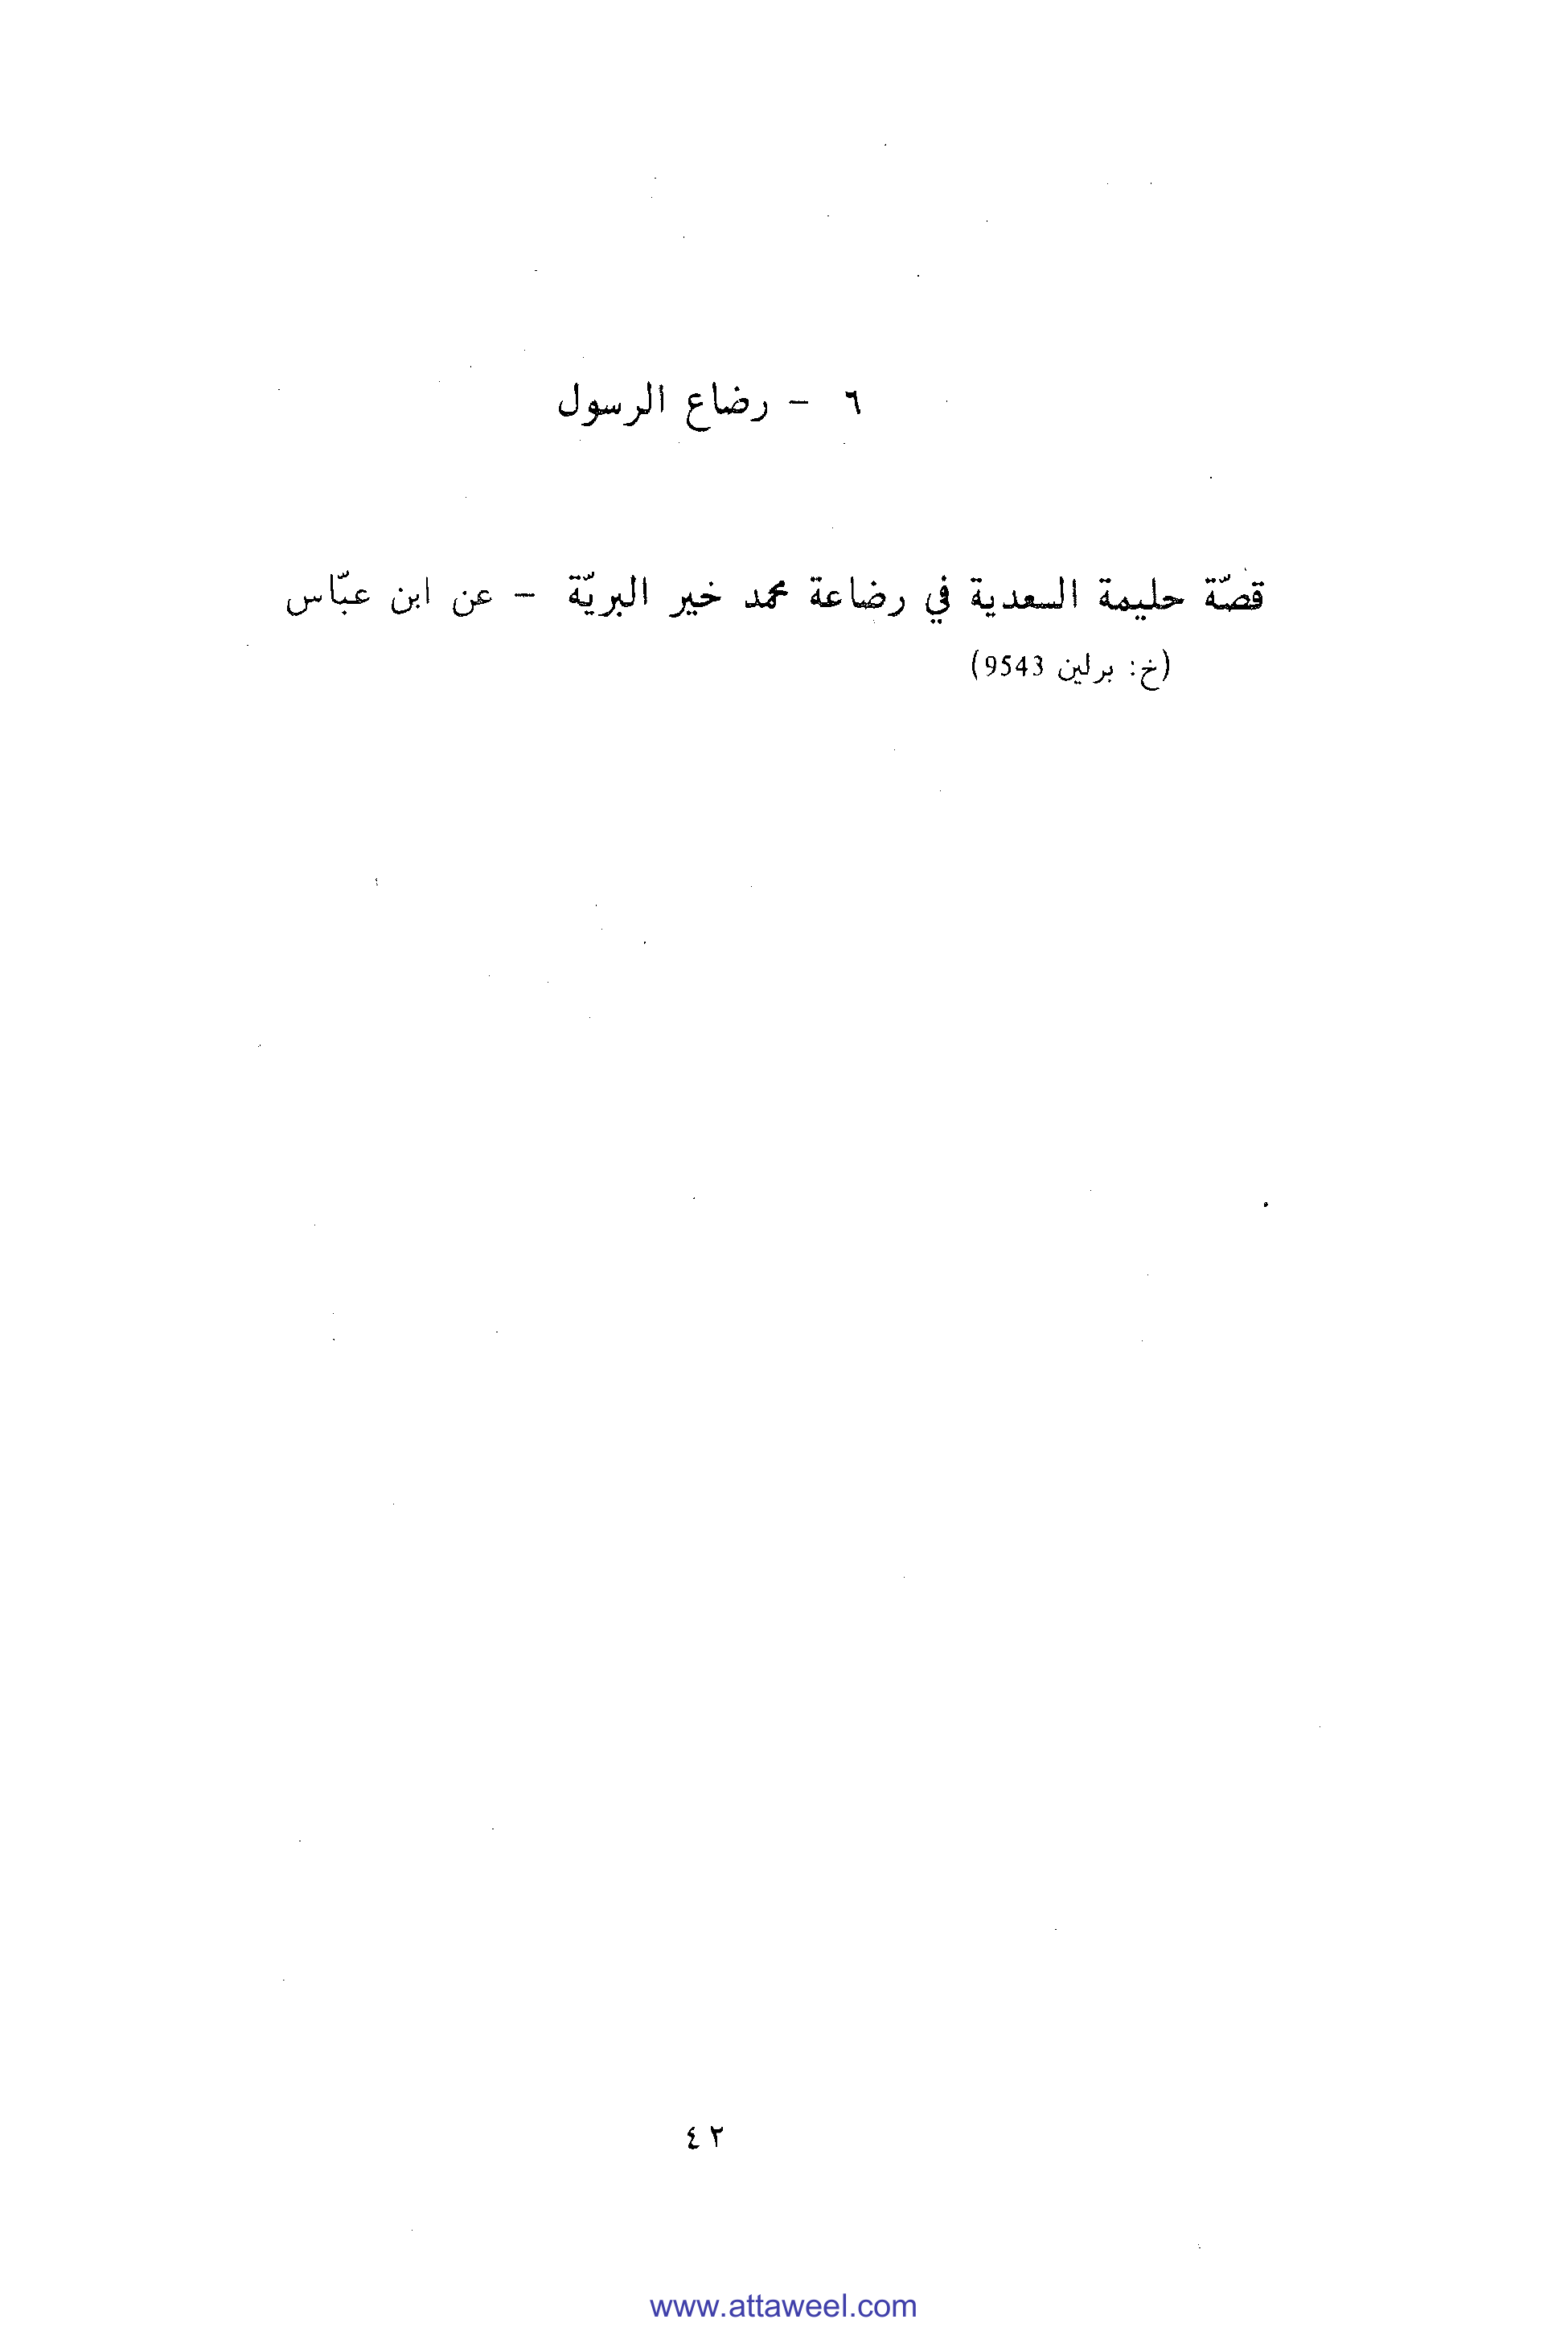 ٦ - رضاع الرسول
قصّة حليمة السعدية في رضاعة محمد خير البريّة - عن ابن عبّاس
(خ: برلين 9543)
٤٢
www.attaweel.com